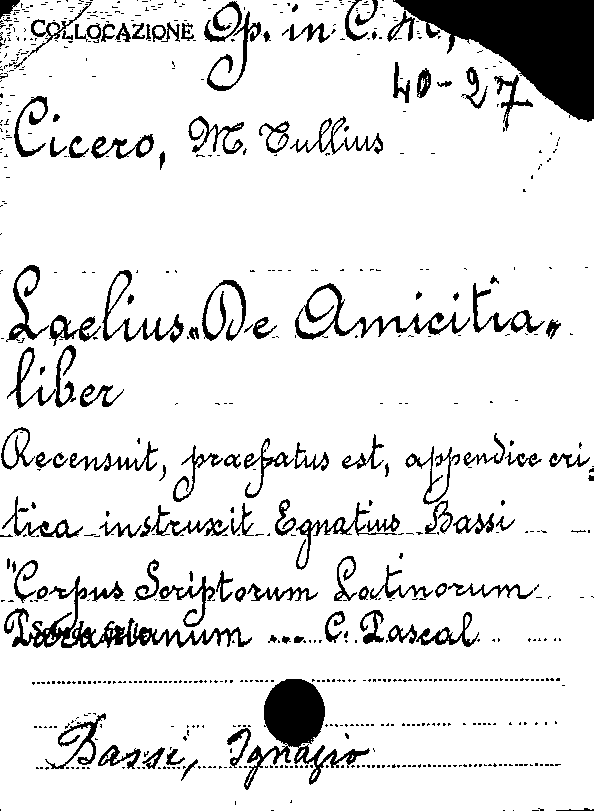 COLLOCAZIONE Op. in C.
40-27
Cicero, M. Tullius
Laelius „De Amicitia„
liber
Recensuit, praefatus est, appendice cri,
tica instruxit Egnatius Bassi
"Corpus Scriptorum Latinorum
Paravianum ... C. Pascal
Bassi, Ignazio